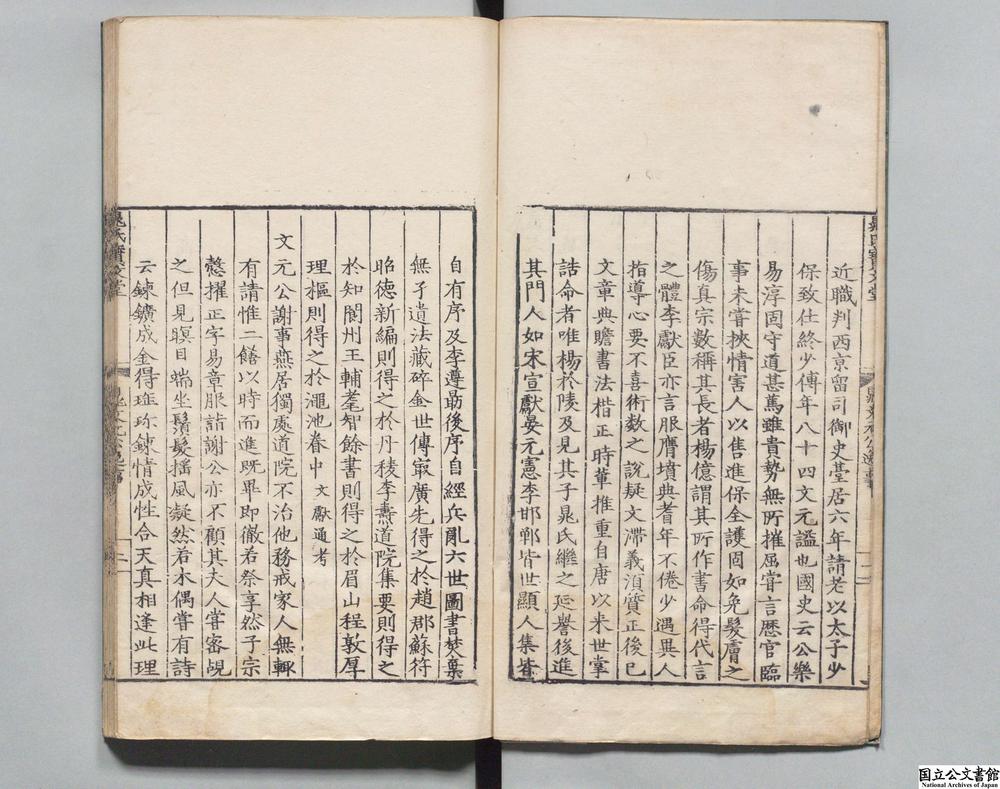 近職判西京留司御史臺居六年請老以太子少
保致仕終少傅年八十四文元謚也國史云公樂
易淳固守道甚篤雖貴勢無所摧屈嘗言歷官臨
事未嘗挾情害人以售進保全護固如免髮膚之
傷真宗數稱其長者楊億謂其所作書命得代言
之體李獻臣亦言服膺墳典耆年不倦少遇異人
指導心要不喜術數之說疑文滯義須質正後已
文章典贍書法楷正時輩推重自唐以来世掌
誥命者唯楊於陵及見其子晁氏繼之延譽後進
其門人如宋宣獻晏元憲李邯鄲皆世顯人集皆
自有序及李遵勗後序自經兵亂六世圖書焚棄
無子遺法藏碎金世傳寂廣先得之於趙郡蘇符
昭德新編則得之於丹稜李燾道院集要則得之
於知閬州王輔耄智餘書則得之於眉山程敦厚
理樞則得之於澠池眷中 文獻通考
文元公謝事燕居獨處道院不治他務戒家人無輒
有請惟二饍以時而進既畢即徹若祭享然子宗
愨擢正字易章服詣謝公亦不顧其夫人嘗密覘
之但見瞑目端坐鬚髮搖風凝然若木偶嘗有詩
云鍊鑛成金得寳珎鍊情成性合天真相逢此理
晁氏寶文堂
二
国立公文書館
National Archives of Japan